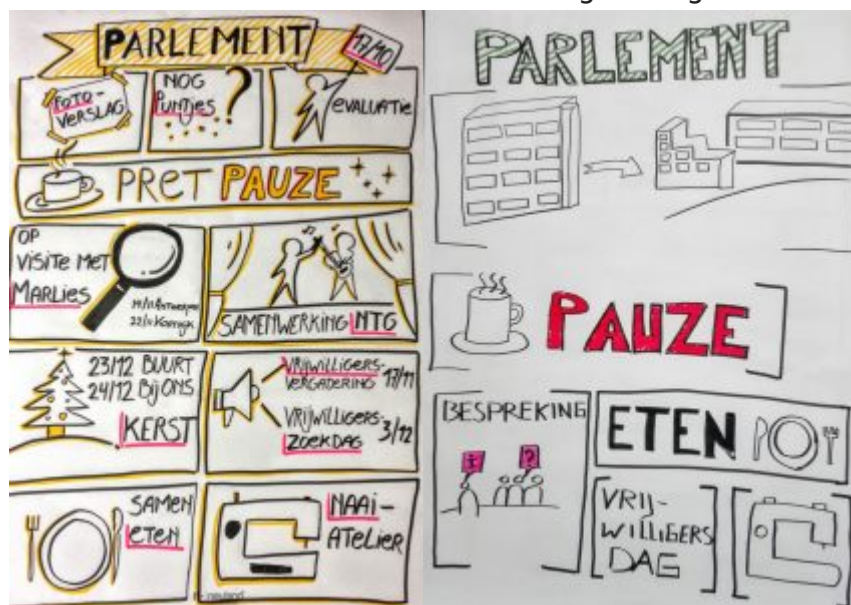 PARLEMENT
17/10
FOTO-
VERSLAG
NOG
PUNTJES
?
EVALUATIE
PRET PAUZE
OP
VISITE MET
MARLIES
22/11 Kortrijk
SAMENWERKING NTG
23/12 BUURT
24/12 Bij ONS
KERST
VRIJWILLIGERS-
VERGADERING 17/11
VRIJWILLIGERS-
ZOEKDAG 3/12
SAMEN
ETEN
NAAI-
ATELIER
PARLEMENT
PAUZE
BESPREKING
?
ETEN
VRIJ-
WILLIGERS
DAG